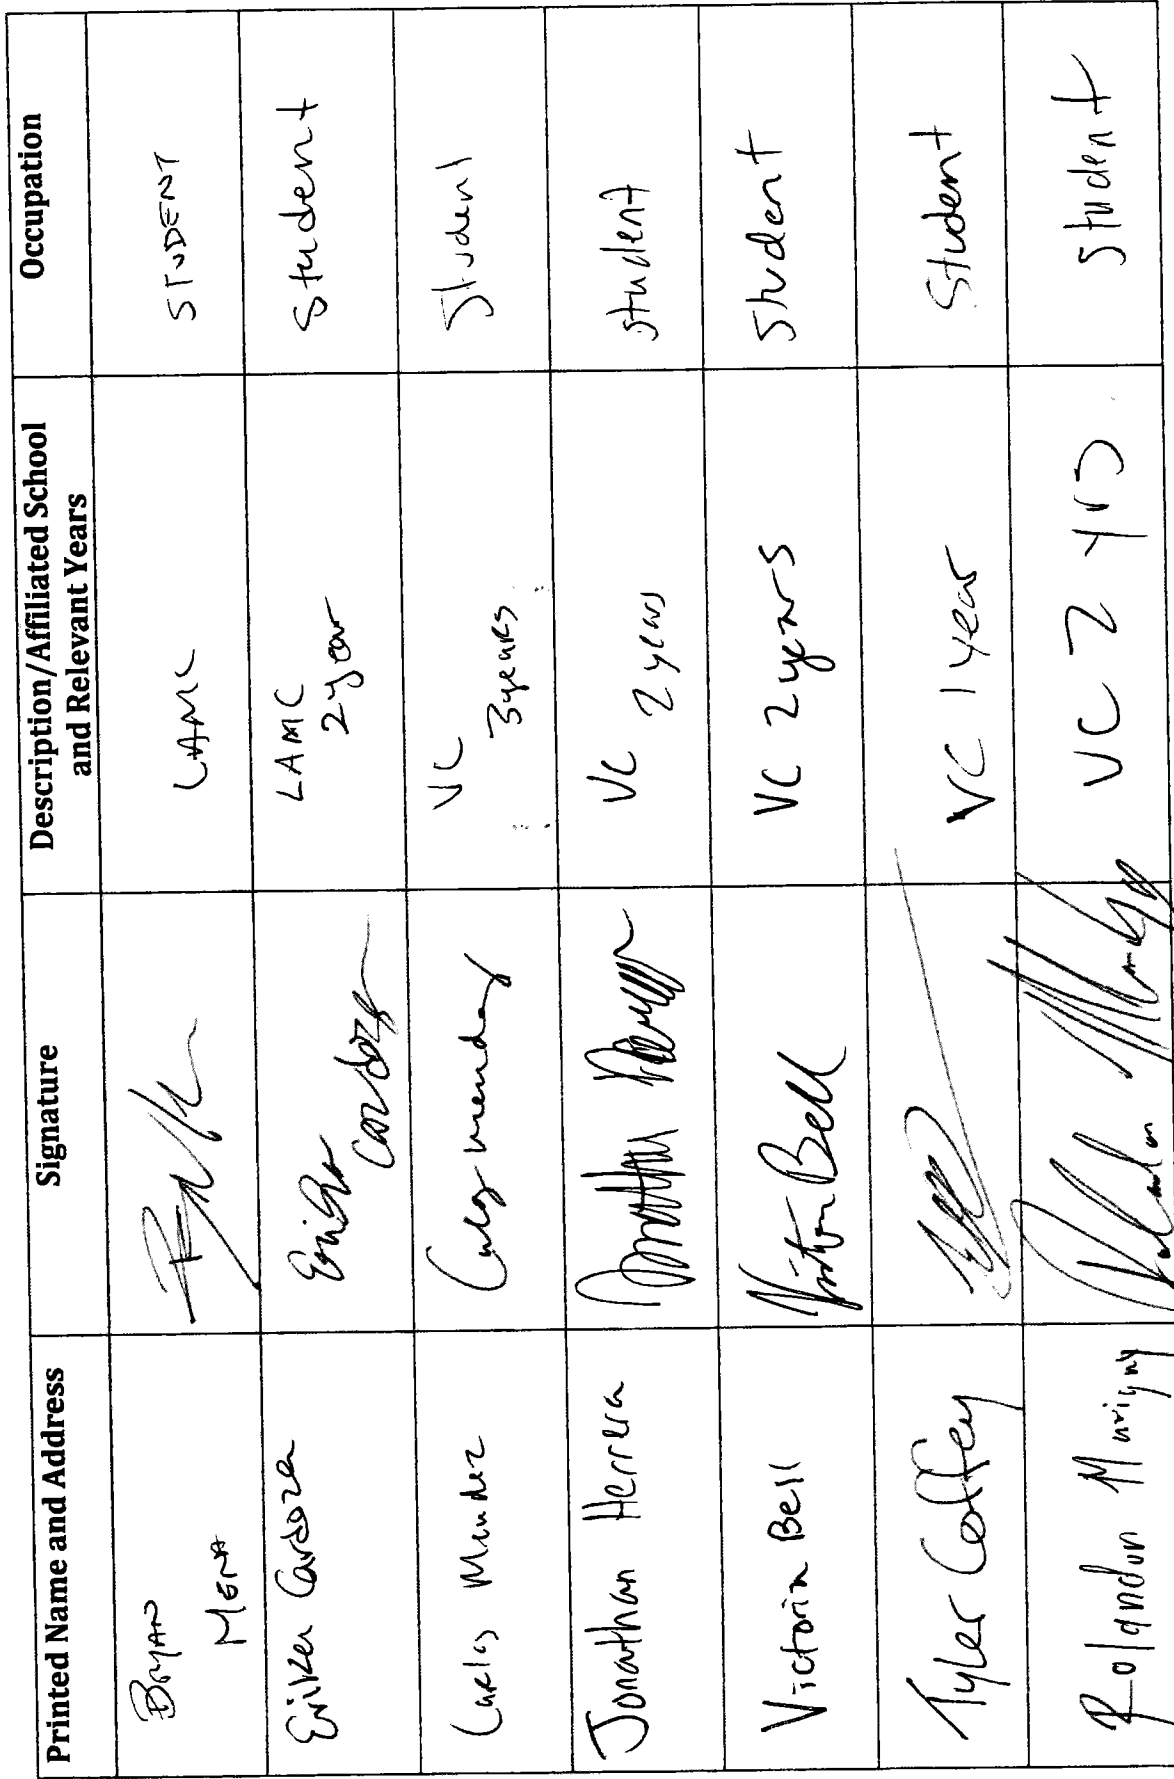 Printed Name and Address
Signature
Description/Affiliated School
and Relevant Years
Occupation
BRYAN
MENA
LAMC
STUDENT
Erika Cardoza
Erika
Cardoza
LAMC
2 year
Student
Carlos Mendez
VC
3 years
Student
Jonathan Herrera
VC 2 years
student
Victoria Bell
Victoria Bell
VC 2 years
Student
Tyler Coffey
VC 1 year
Student
Rolandon Marigny
VC 2 yrs
student